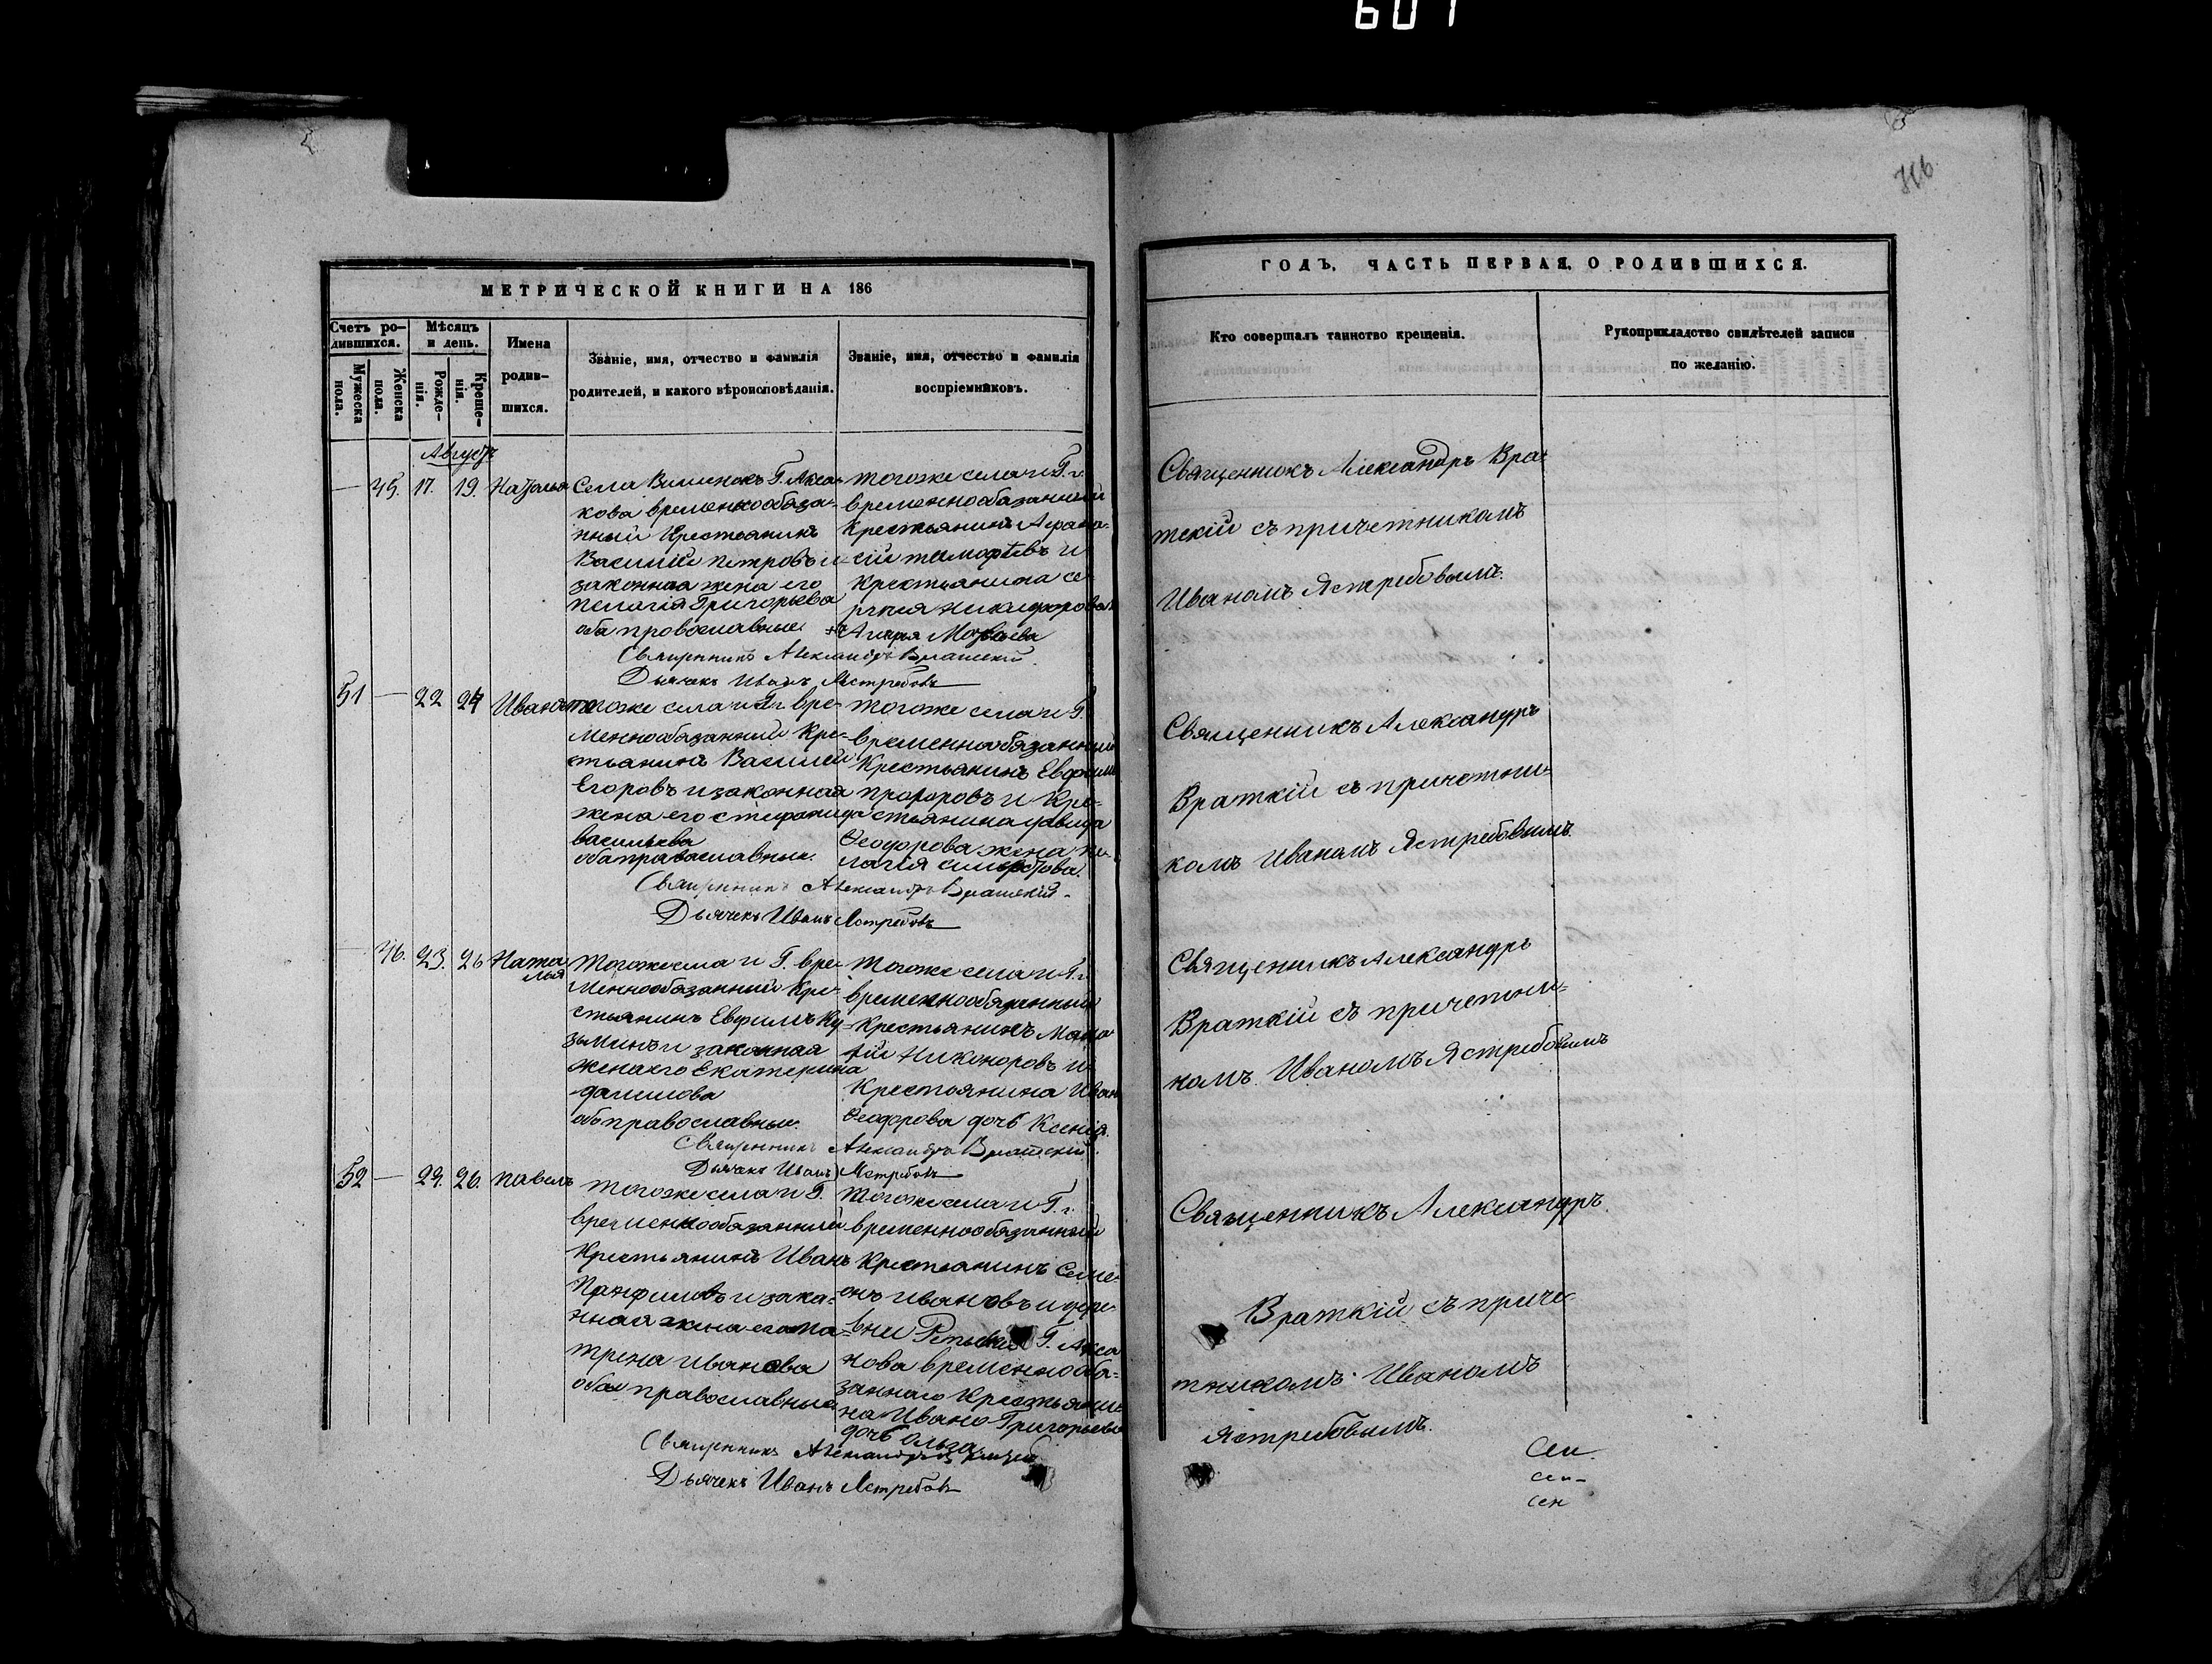 601
316
МЕТРИЧЕСКОЙ КНИГИ НА 186
Счетъ ро-
дившихся.
Мѣсяцъ
и день.
Имена
родив-
шихся.
Званіе, имя, отчество и фамилія
родителей, и какого вѣроисповѣданія.
Званіе, имя, отчество и фамилія
воспріемниковъ.
Мужеска
пола.
Женска
пола.
Рожде-
нія.
Креще-
нія.
Августъ
— 45. 17. 19. Наталья
Села Г. Акса-
кова временнообяза-
нный Крестьянинъ
Василій петровъ и
законная жена его
пелагія Григорьева
оба провославные.
тогоже села и Г.
временнообязанный
Крестьянинъ Афана-
сій тимофѣевъ и
крестьянина се-
ргѣя никифорова
Священникъ Александръ Братскій.
Дьячекъ Иванъ Ястребовъ
51 — 22 24 Иванъ
тогоже села и Г. вре-
меннообязанный Кре-
стьянинъ Василій
Егоровъ и законная
жена его стефанида
васильева
оба православные.
тогоже села и Г.
временнообязанный
Крестьянинъ Евфимъ
и Кре-
стьянина давида
Ѳеодорова жена пе-
лагія
Священникъ Александръ Братскій.
Дьячекъ Иванъ Ястребовъ
— 46. 23. 26 Ната
лья
Тогоже села и Г. вре-
меннообязанный Кре-
стьянинъ Евфимъ Ку-
зьминъ и законная
жена его Екатерина
данилова
оба православные.
тогоже села и Г.
временнообязанный
Крестьянинъ
Никоноровъ и
Крестьянина Иван
Ѳеодорова дочь Ксенія.
Священникъ Александръ Братскій.
Дьячекъ Иванъ Ястребовъ
52 — 24. 26. павелъ
тогоже села и Г.
временнообязанный
Крестьянинъ Иванъ
Панфиловъ и зако-
нная жена его ма-
трена иванова
оба православные
тогоже села и Г.
временнообязанный
Крестьянинъ Симе-
онъ ивановъ и дере-
вни Г. Акса
кова временнообя-
заннаго Крестьяни-
на Ивана Григорьева
дочь ольга.
Священникъ Александръ Братскій
Дьячекъ Иванъ Ястребовъ
ГОДЪ, ЧАСТЬ ПЕРВАЯ, О РОДИВШИХСЯ.
Кто совершалъ таинство крещенія.
Рукоприкладство свидѣтелей записи
по желанію.
Священникъ Александръ Бра-
тскій съ причетникомъ
Иваномъ Ястребовымъ.
Священникъ Александръ
Братскій съ причетни-
комъ Иваномъ Ястребовымъ.
Священникъ Александръ
Братскій съ причетни-
комъ Иваномъ Ястребовымъ
Священникъ Александръ.
Братскій съ приче-
тникомъ Иваномъ
Ястребовымъ.